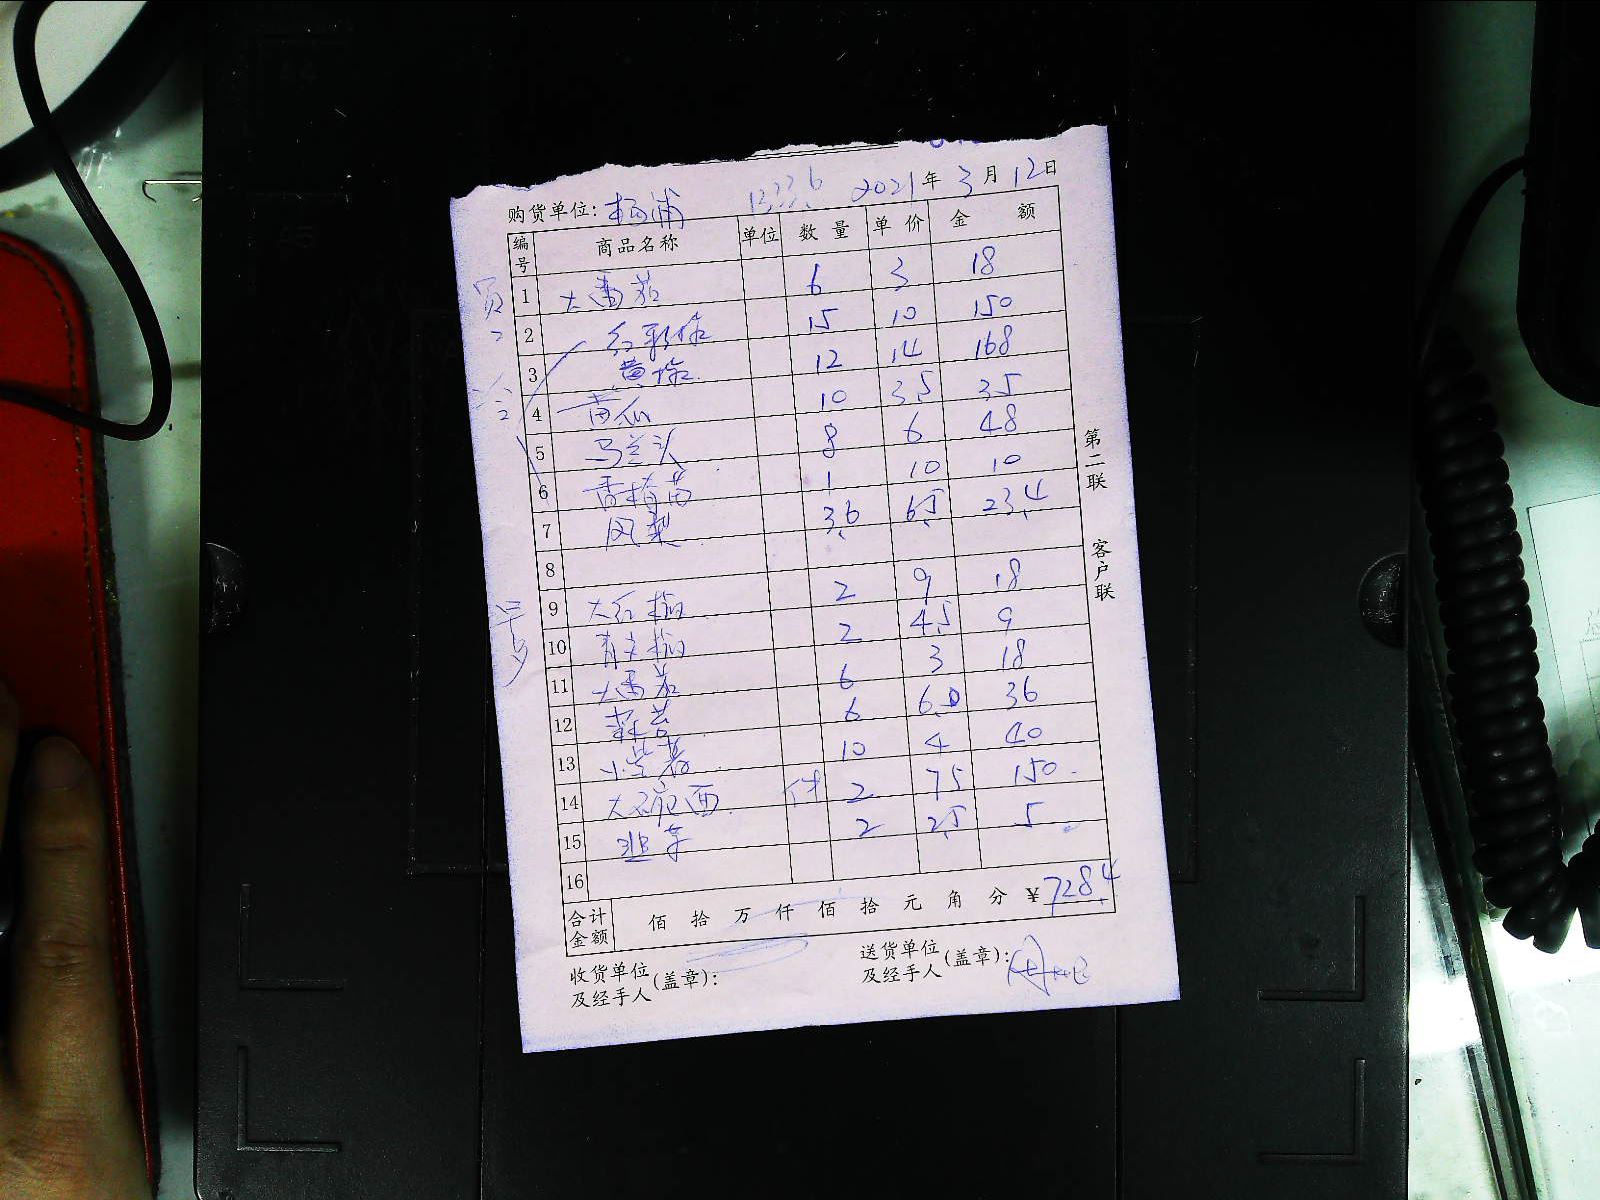 购货单位: 杨浦 1233.6 2021年3月12日
编号 商品名称 单位 数量 单价 金额
1 大番茄 6 3 18
2 红彩椒 15 10 150
3 黄椒 12 14 168
4 黄瓜 10 3.5 35
5 马兰头 8 6 48
6 香椿苗 1 10 10
7 凤梨 3.6 6.5 23.4
8
9 大红椒 2 9 18
10 青尖椒 2 4.5 9
11 大番茄 6 3 18
12 6 6.0 36
13 10 4 40
14 件 2 75 150
15 韭芽 2 2.5 5
16
合计金额 佰 拾 万 仟 佰 拾 元 角 分 ¥728.4
收货单位及经手人(盖章):
送货单位及经手人(盖章):
第二联 客户联